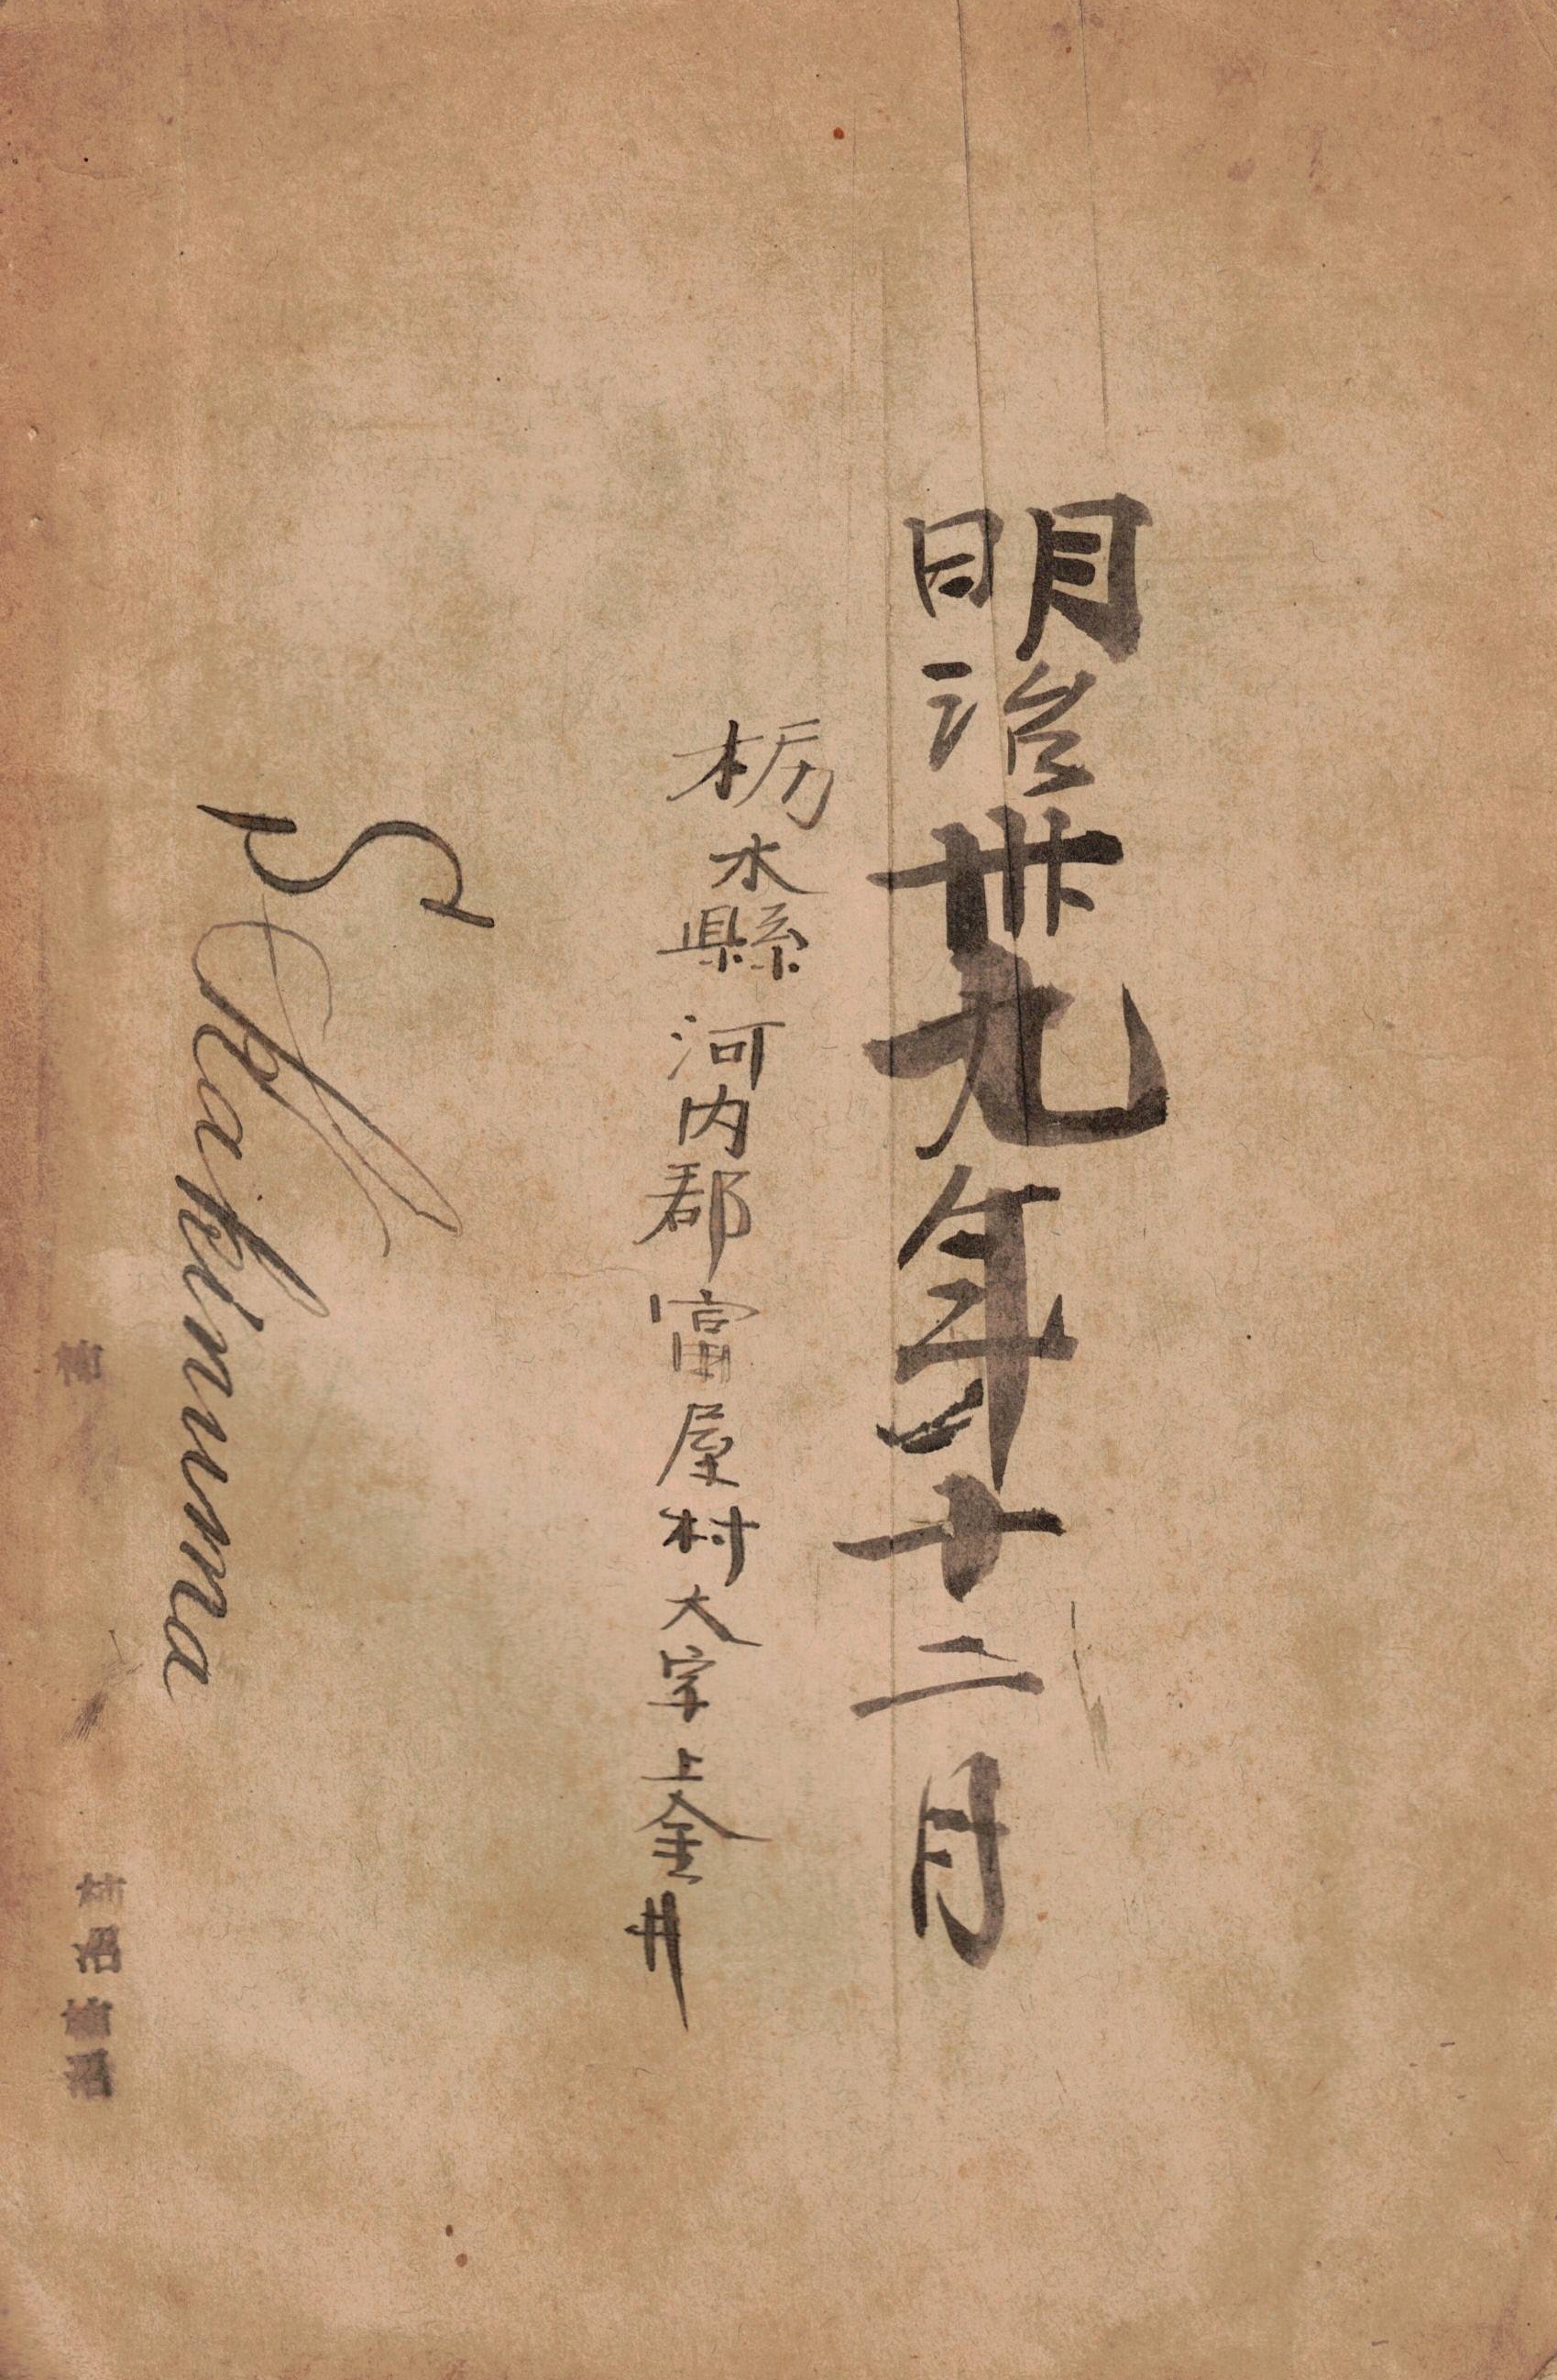 明治卅九年十二月
栃木縣河内郡富屋村大字上金井
S Kakinuma